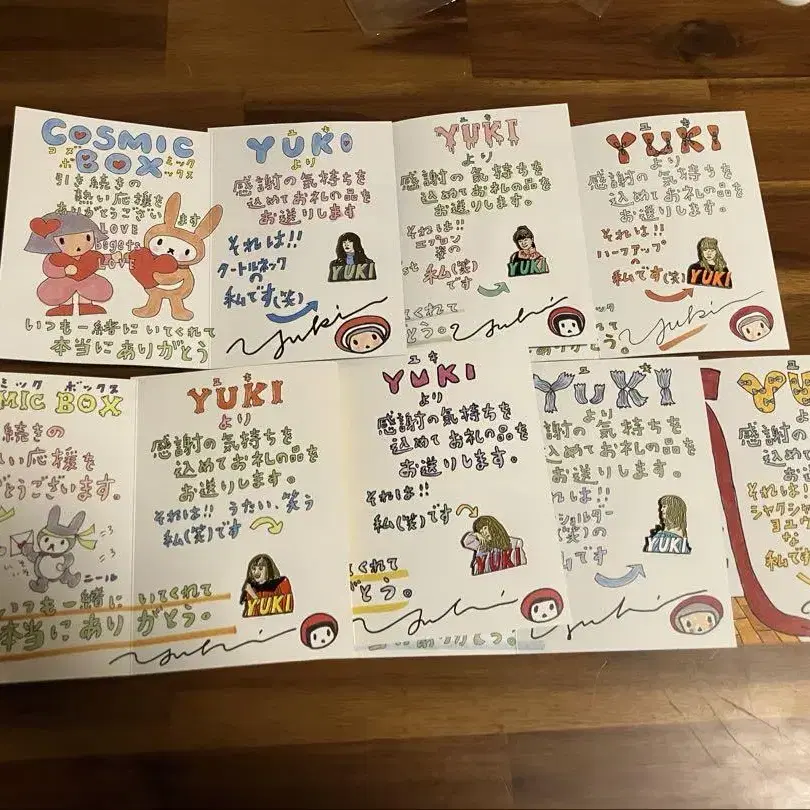 COSMIC
コズミック
BOX
ボックス
引き続きの
熱い応援を
ありがとうござい
ます
LOVE
begets
LOVE
いつも一緒にいてくれて
本当にありがとう
ユキ
YUKI
より
感謝の気持ちを
込めてお礼の品を
お送りします
それは!!
タートルネック
の
私です(笑)
YUKI
Yuki
ユキ
YUKI
より
感謝の気持ちを
込めてお礼の品を
お送りします。
それは!!
私(笑)
です
YUKI
てくれて
とう。
Yuki
ユキ
YUKI
より
感謝の気持ちを
込めてお礼の品を
お送りします。
それは!!
ハーフアップ
の
私です(笑)
YUKI
う。
Yuki
ミック ボックス
MIC BOX
続きの
い応援を
がとうございます。
ころ
ころ
ニール
いつも一緒に いてくれて
本当にあり がとう。
ユキ
YUKI
より
感謝の気持ちを
込めてお礼の品を
お送りします。
それは!! うたい、笑う
私(笑)です
YUKI
Yuki
ユキ
YUKI
より
感謝の気持ちを
込めてお礼の品を
お送りします。
それは!!
私(笑)です
YUKI
くれて
とう。
Yuki
ユキ
YUKI
より
謝の気持ちを
込めてお礼の品を
お送りします。
れは!!
ショルダー
(笑)の
です
YUKI
ありがとう。
Yuki
ユ
YU
よ
感謝の
込めて
お送
それは!
シャクシャ
ヨユ
な
私です